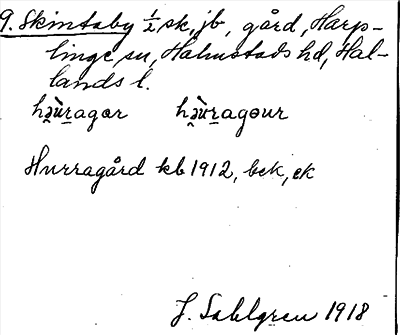 9. Skintaby ½ sk, jb, gård, Harp-
linge sn, Halmstads hd, Hal-
lands l.
hə̀u̯ragɑr hə̀u̯ragɵur
Hurragård kb 1912, bek, ek
J. Sahlgren 1918